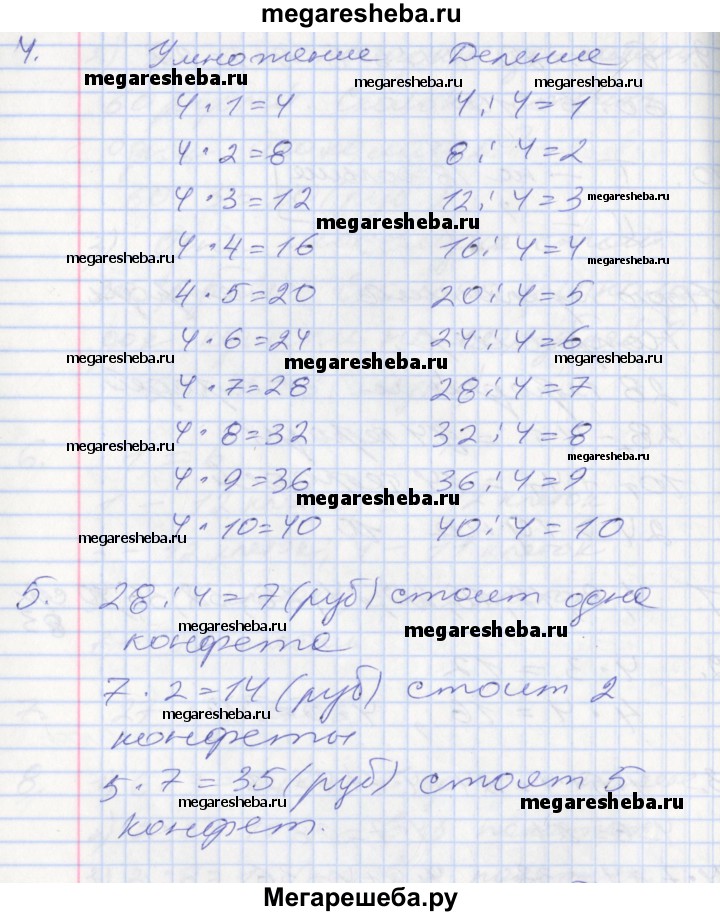 megaresheba.ru
4. Умножение Деление
megaresheba.ru megaresheba.ru megaresheba.ru
4 · 1 = 4 4 : 4 = 1
4 · 2 = 8 8 : 4 = 2
4 · 3 = 12 12 : 4 = 3 megaresheba.ru
megaresheba.ru
4 · 4 = 16 16 : 4 = 4
megaresheba.ru megaresheba.ru
4 · 5 = 20 20 : 4 = 5
4 · 6 = 24 24 : 4 = 6
megaresheba.ru megaresheba.ru megaresheba.ru
4 · 7 = 28 28 : 4 = 7
4 · 8 = 32 32 : 4 = 8
megaresheba.ru megaresheba.ru
4 · 9 = 36 36 : 4 = 9
megaresheba.ru
4 · 10 = 40 40 : 4 = 10
megaresheba.ru
5. 28 : 4 = 7 (руб) стоит одна
megaresheba.ru megaresheba.ru
конфета
7 · 2 = 14 (руб) стоит 2
megaresheba.ru
конфеты
5 · 7 = 35 (руб) стоят 5
megaresheba.ru megaresheba.ru
конфет.
Мегарешеба.ру